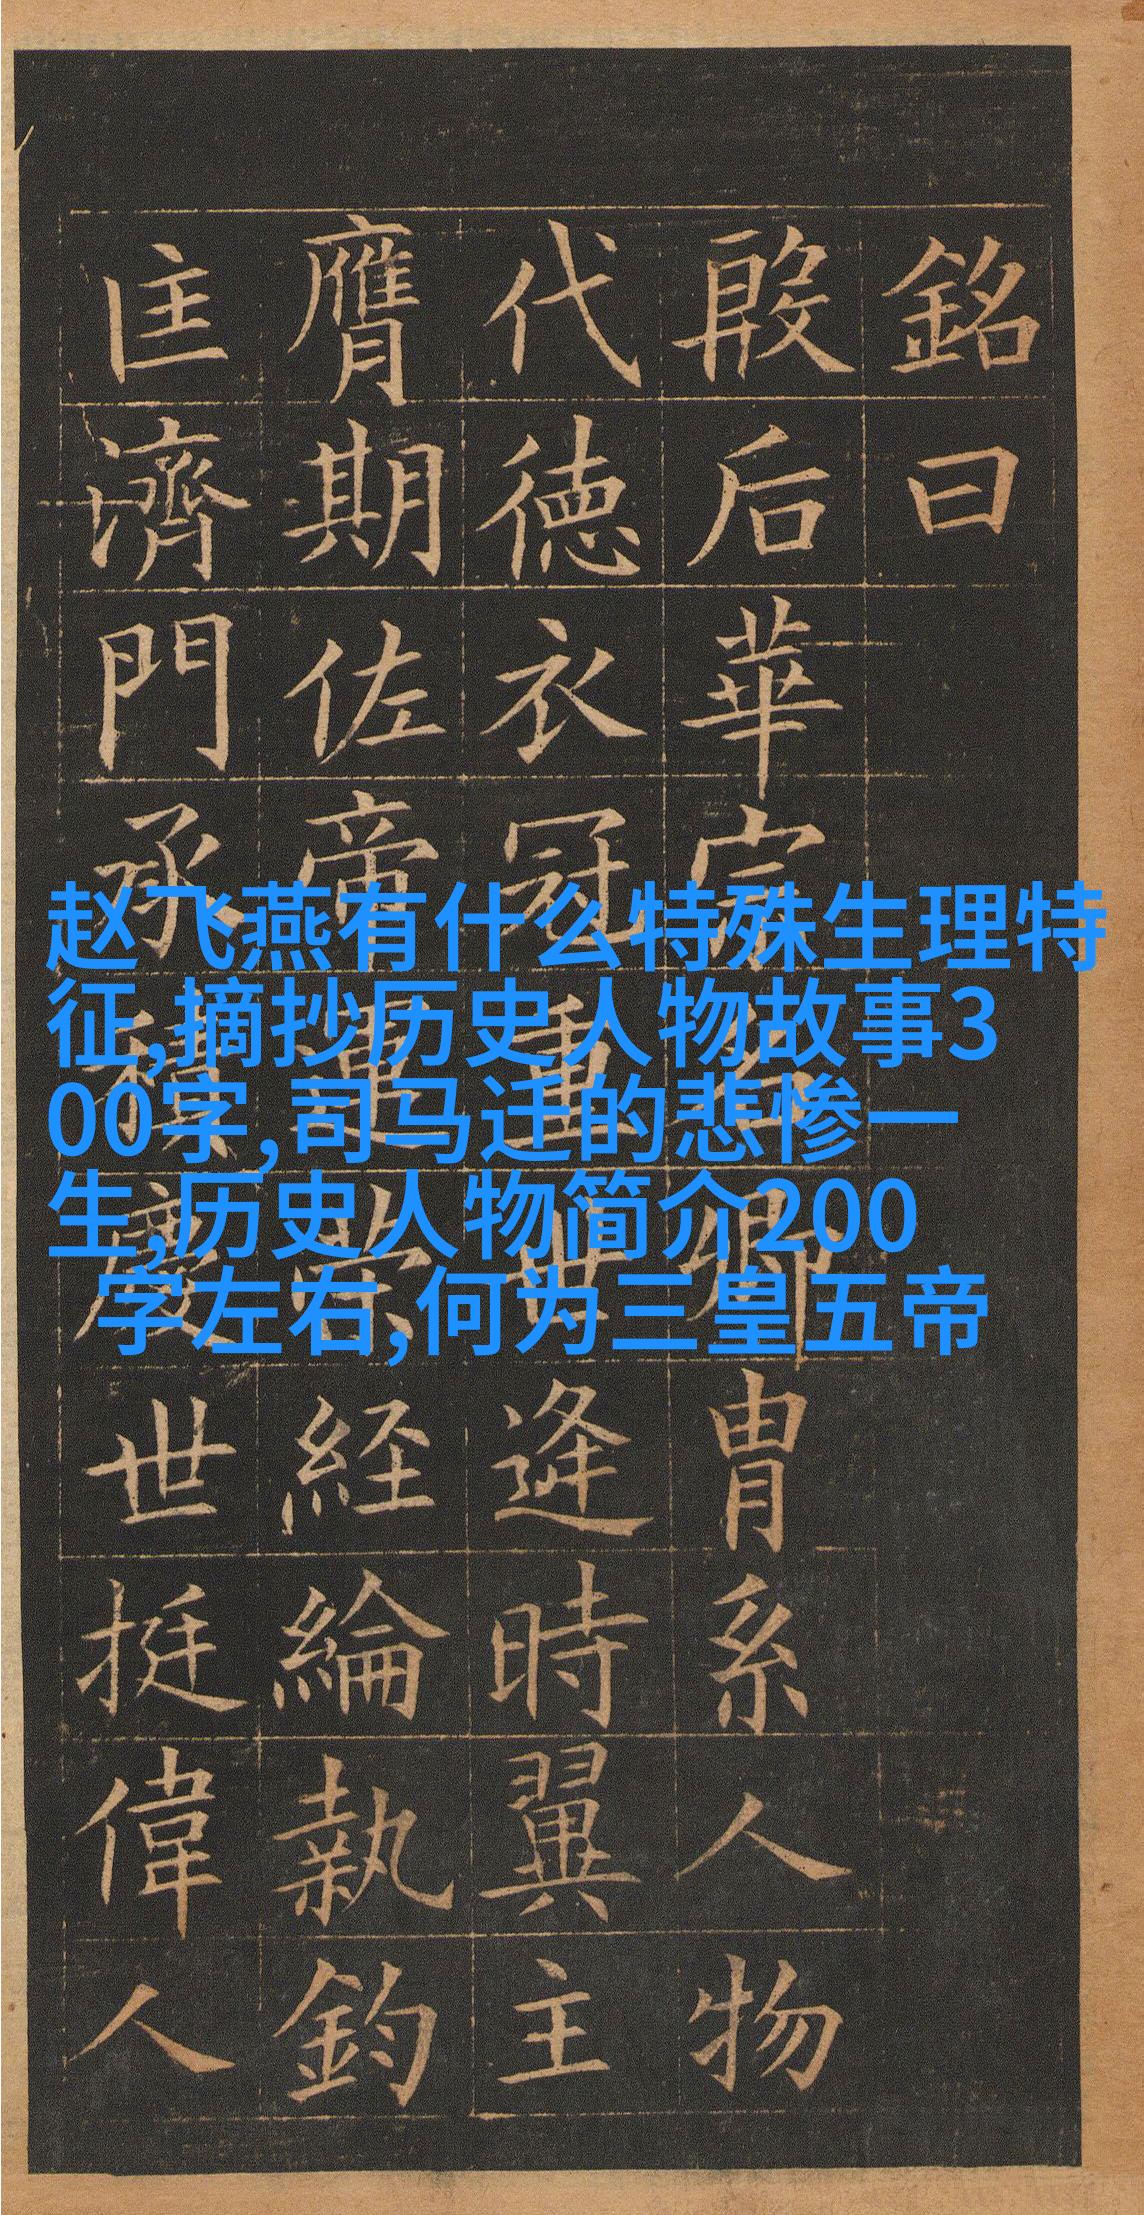 赵飞燕有什么特殊生理特
征,摘抄历史人物故事3
00字,司马迁的悲惨一
生,历史人物简介200
字左右,何为三皇五帝
銘曰
殷后華宗卿冑系人物
代德衣冠重世逢時翼主
膺期佐帝運経綸執鈞
匡濟門承積慶世挺偉人